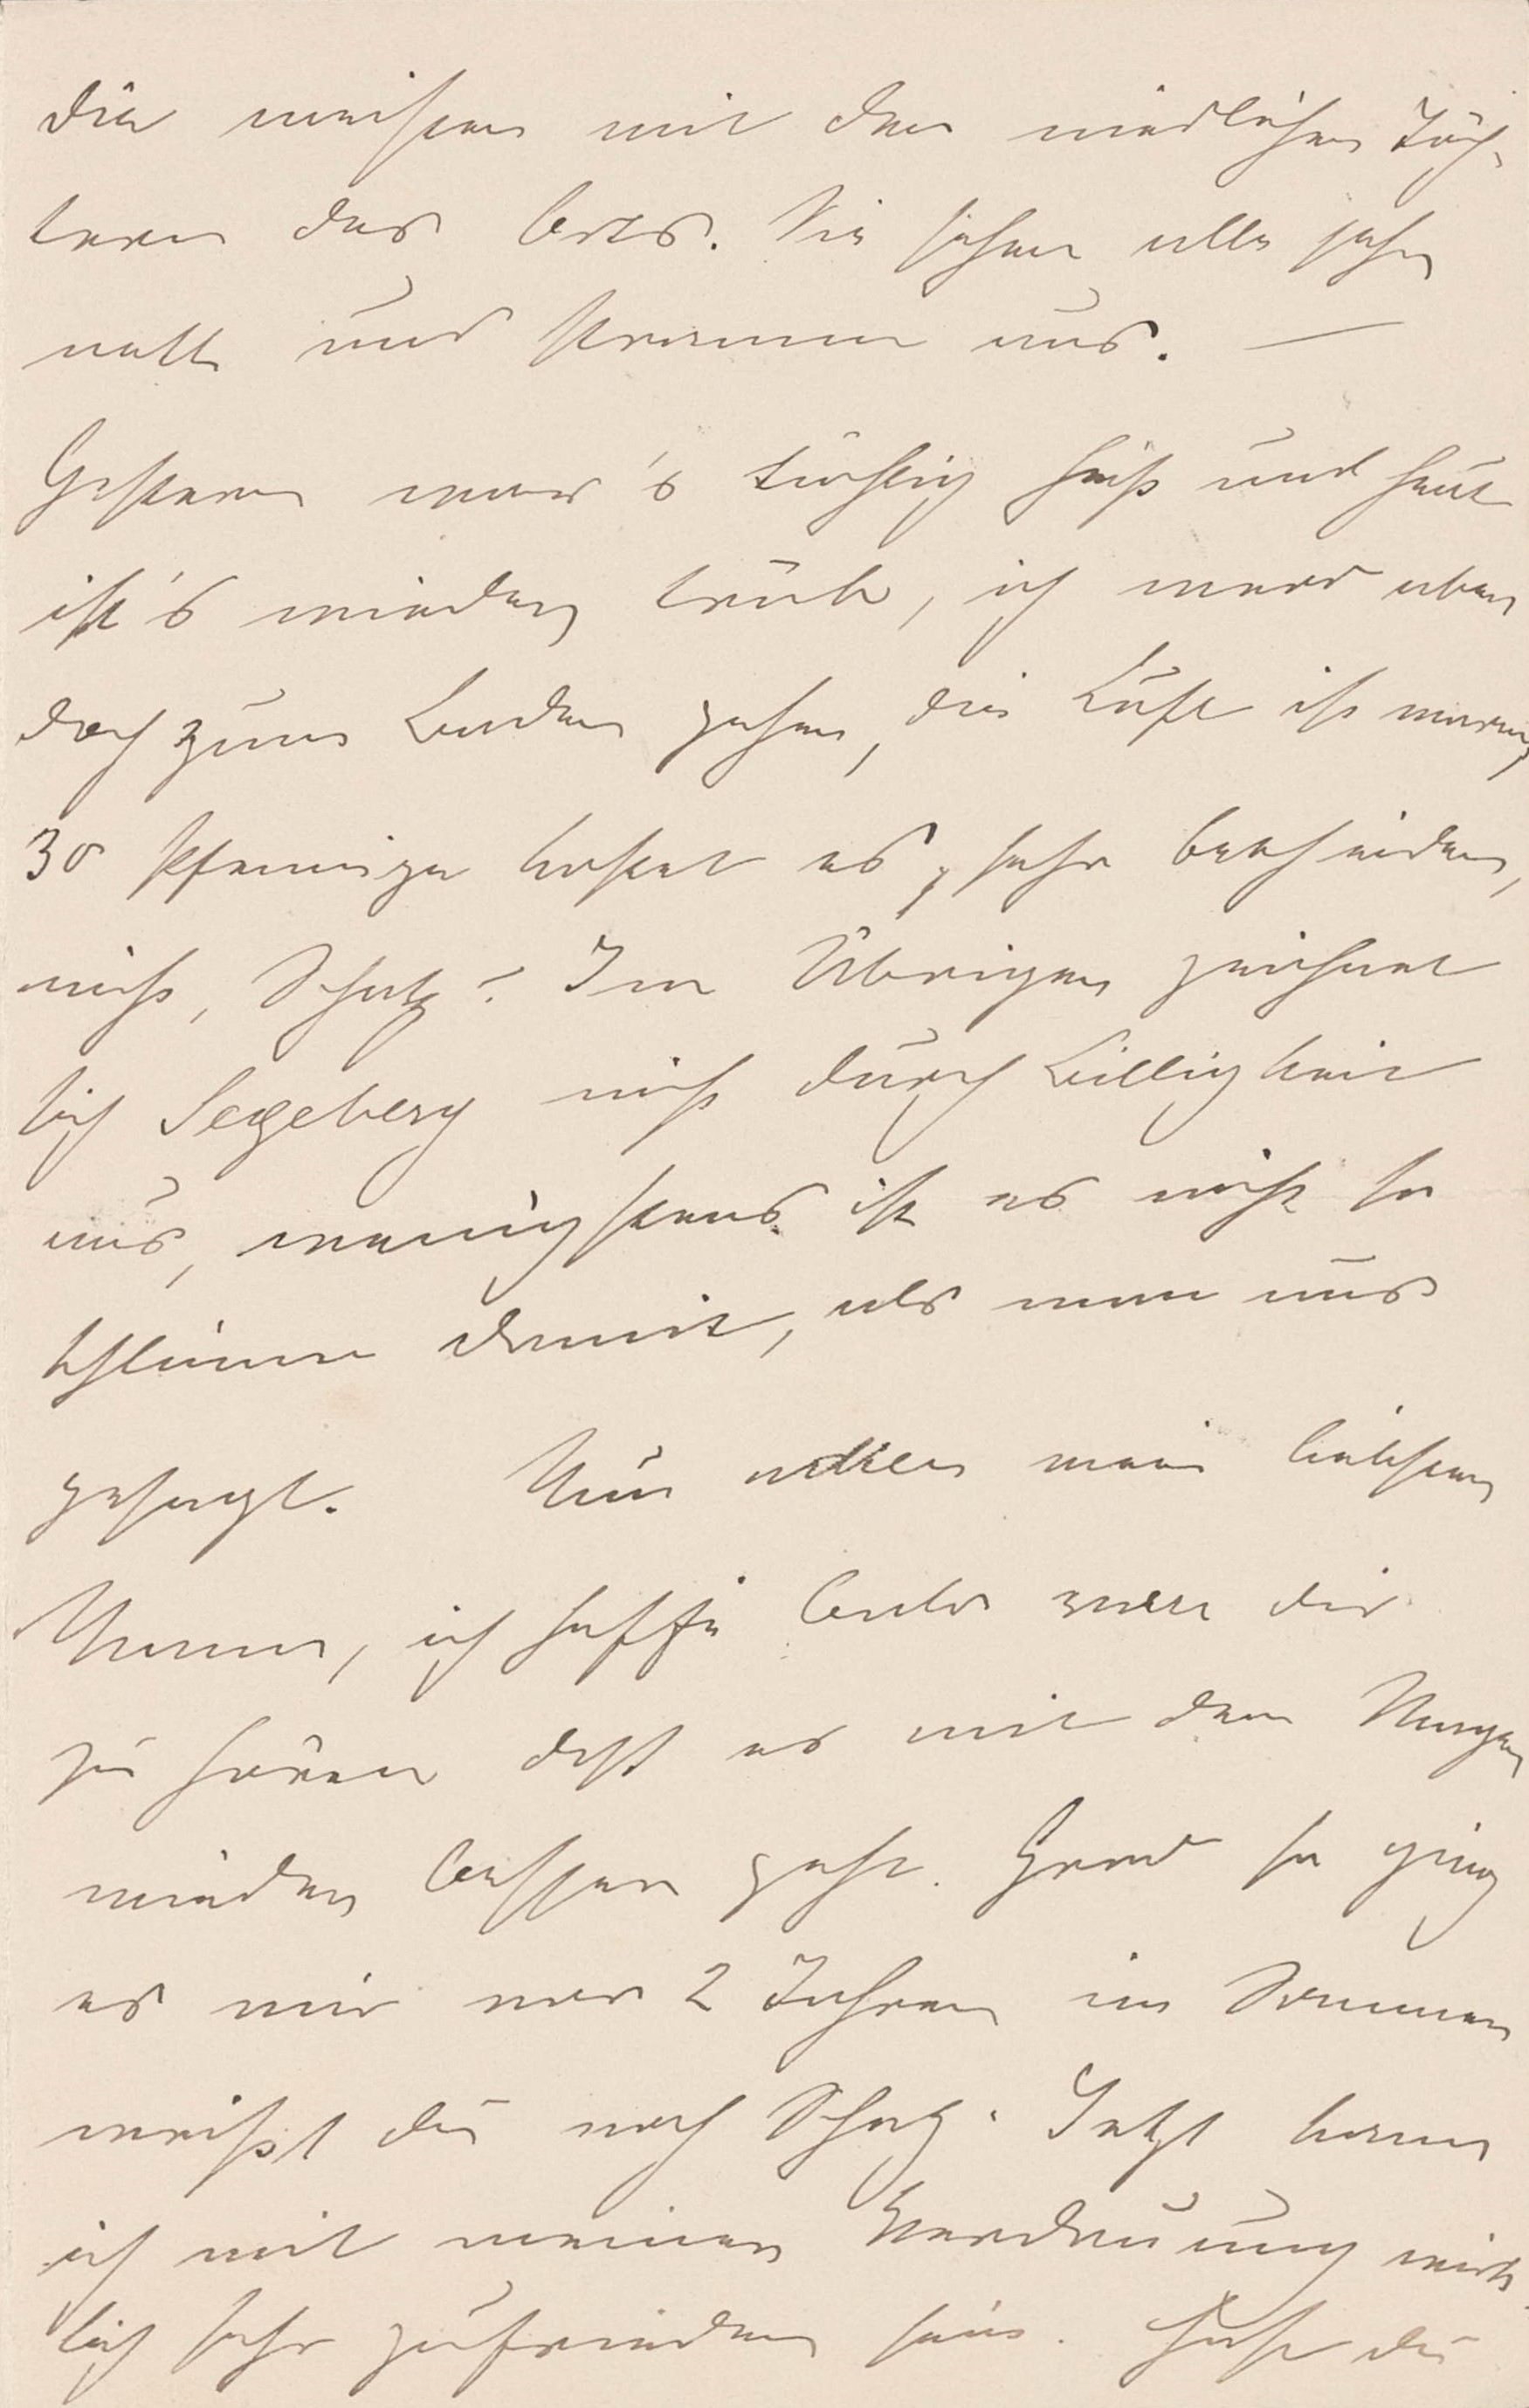 die meisten mit den niedlichen Töch-
tern des Orts. Sie sehen alle sehr
nett und stramm aus. —
Gestern war's tüchtig heiß und heut
ist's wieder trüb, ich werd aber
doch zum Baden gehen, die Luft ist warm,
30 Pfennige kostet es, sehr bescheiden,
nicht, Schatz? Im Übrigen zeichnet
sich Segeberg nicht durch Billigkeit
aus, wenigstens ist es nicht so
schlimm damit, als man uns
gesagt. Nun mein liebster
Mann, ich hoffe bald von dir
zu hören daß es mit dem Magen
wieder besser geht. Grad so ging
es mir vor 2 Jahren im Sommer
weißt du noch Schatz. Jetzt kann
ich mit meiner Verdauung wirk-
lich sehr zufrieden sein. Hast du